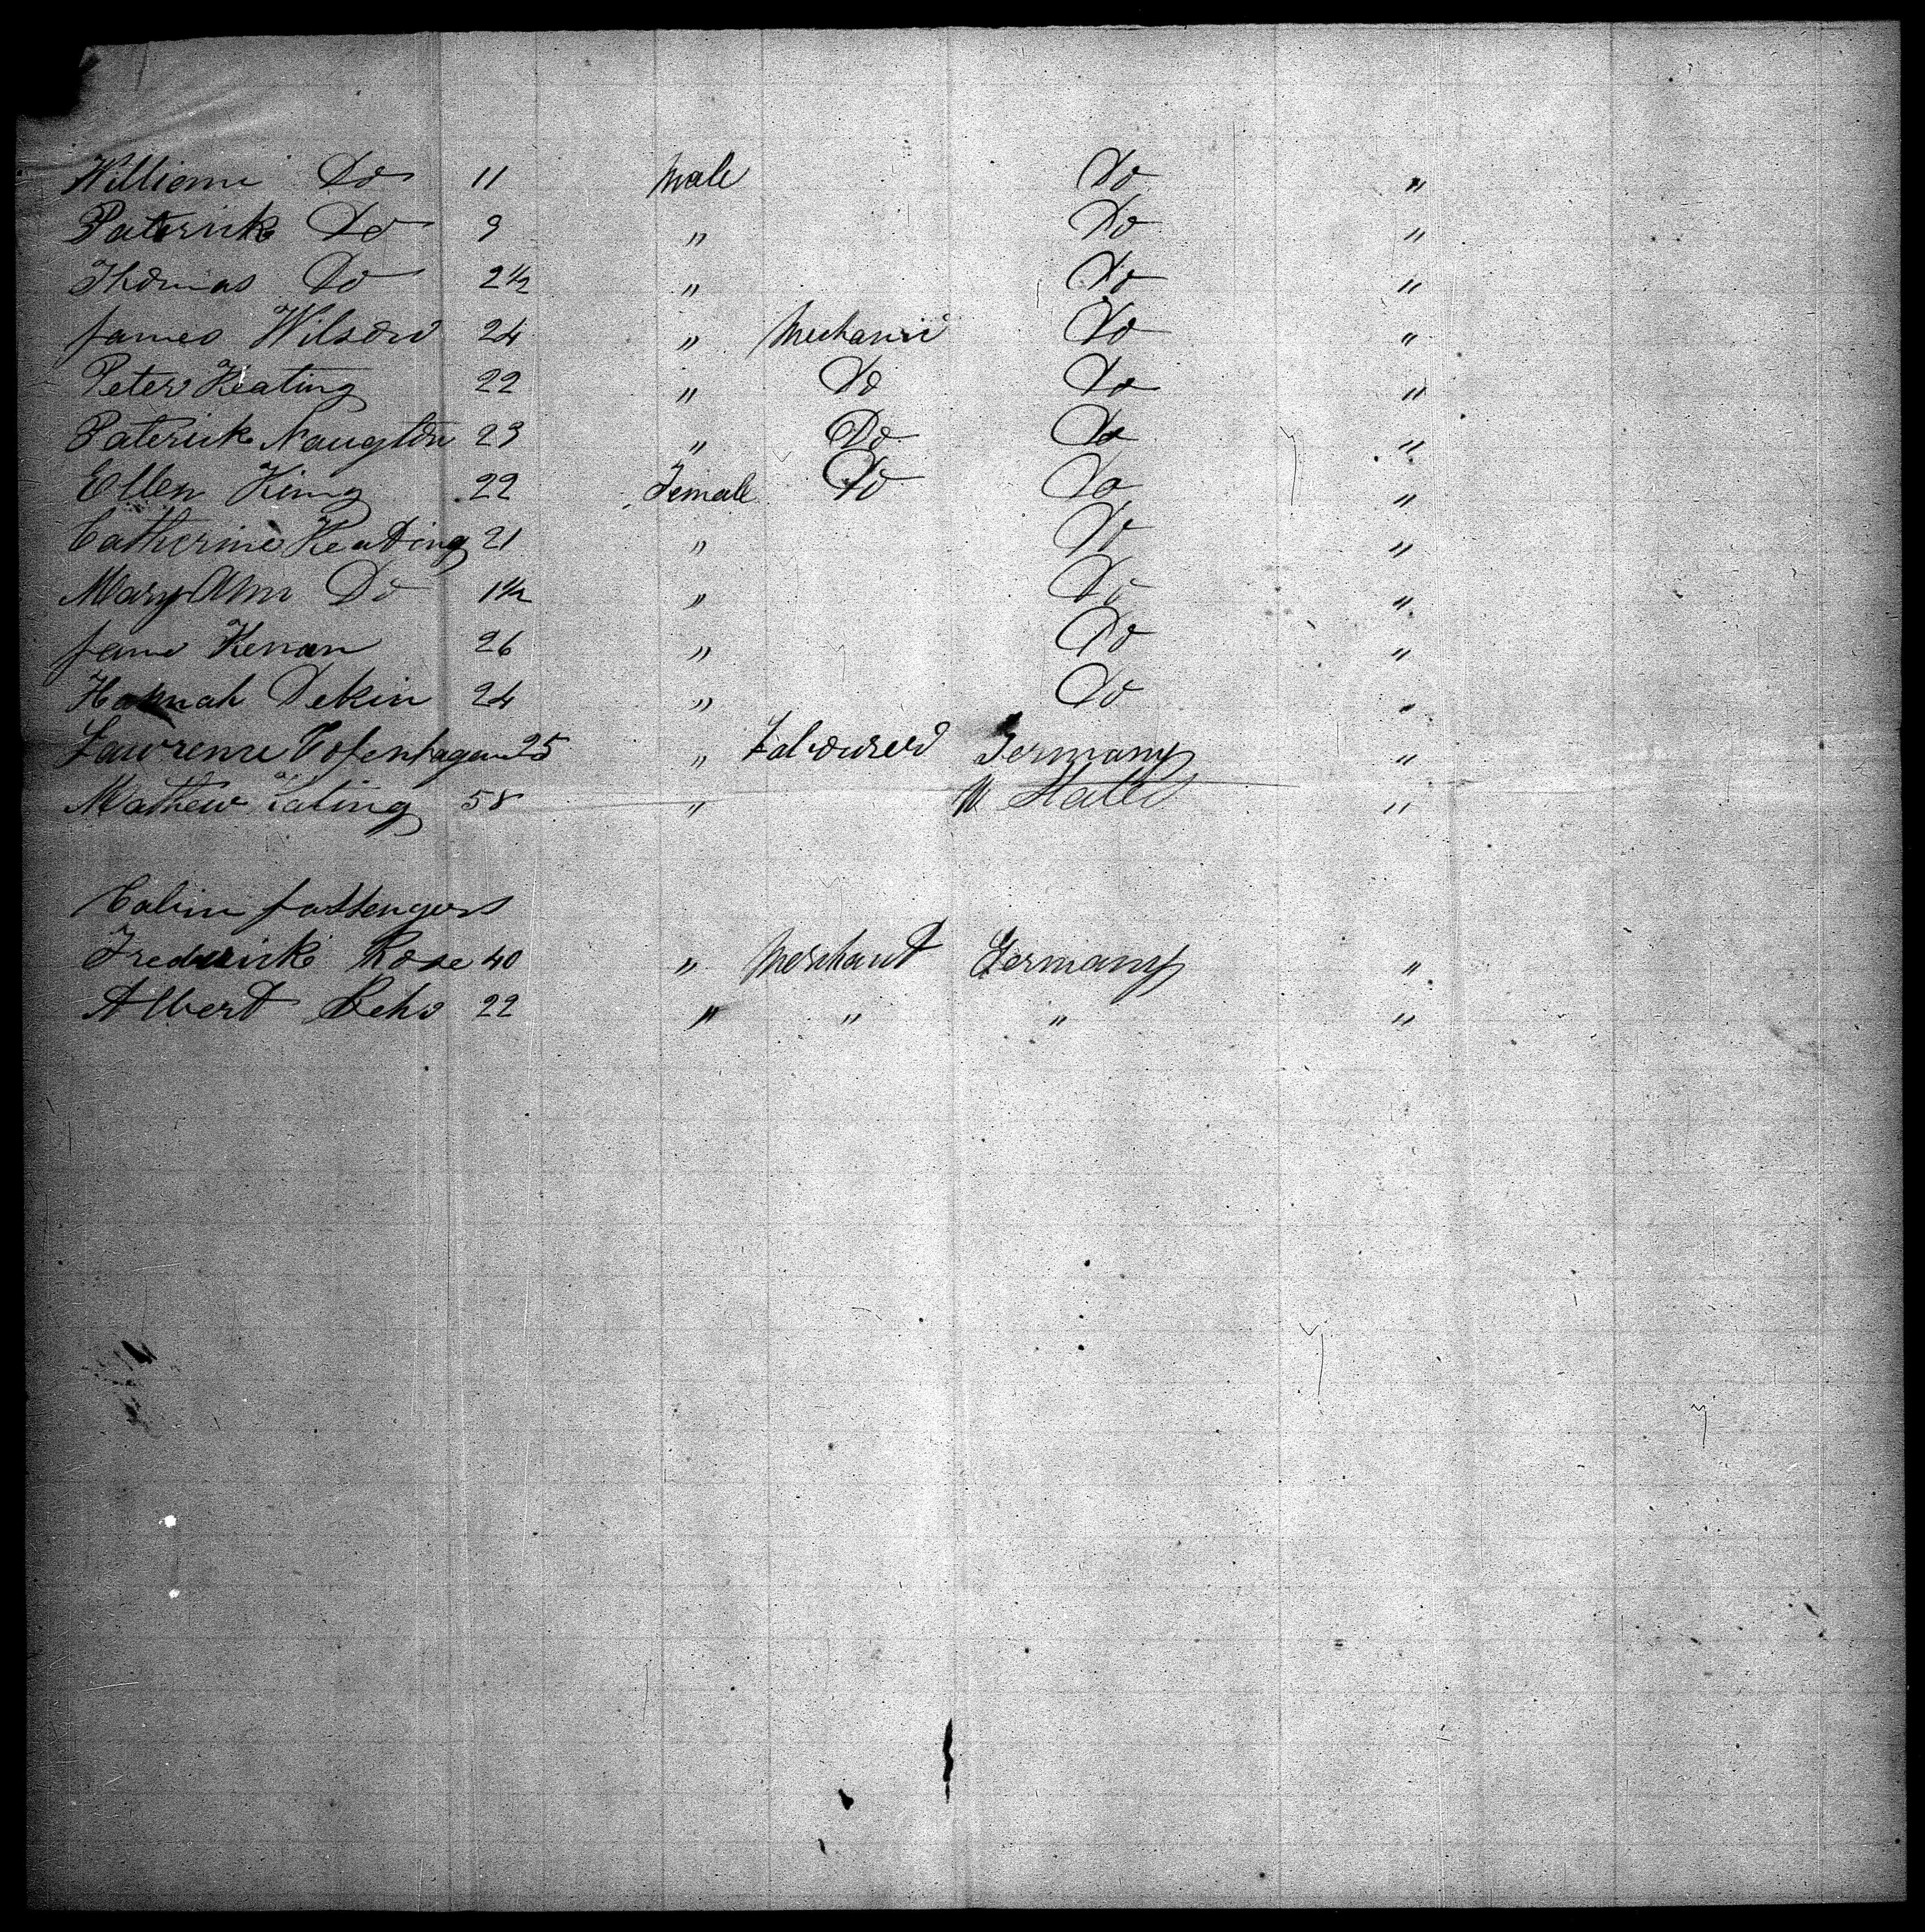 William Do 11 Male Do "
Paterick Do 9 " Do "
Thomas Do 2½ " Do "
James Wilson 24 " Mechanic Do "
Peter Keating 22 " Do Do "
Paterick Naughton 23 " Do Do "
Ellen King 22 Female Do Do "
Catherine Keating 21 " Do "
Mary Ann Do 1½ " Do "
Jane Kenan 26 " Do "
Hannah Dekin 24 " Do "
Lawrence Copenhagen 25 " Labourer Germany "
Mathew Kating 58 " U States "
Cabin passengers
Frederick Rose 40 " Merchant Germany "
Albert 22 " " " "